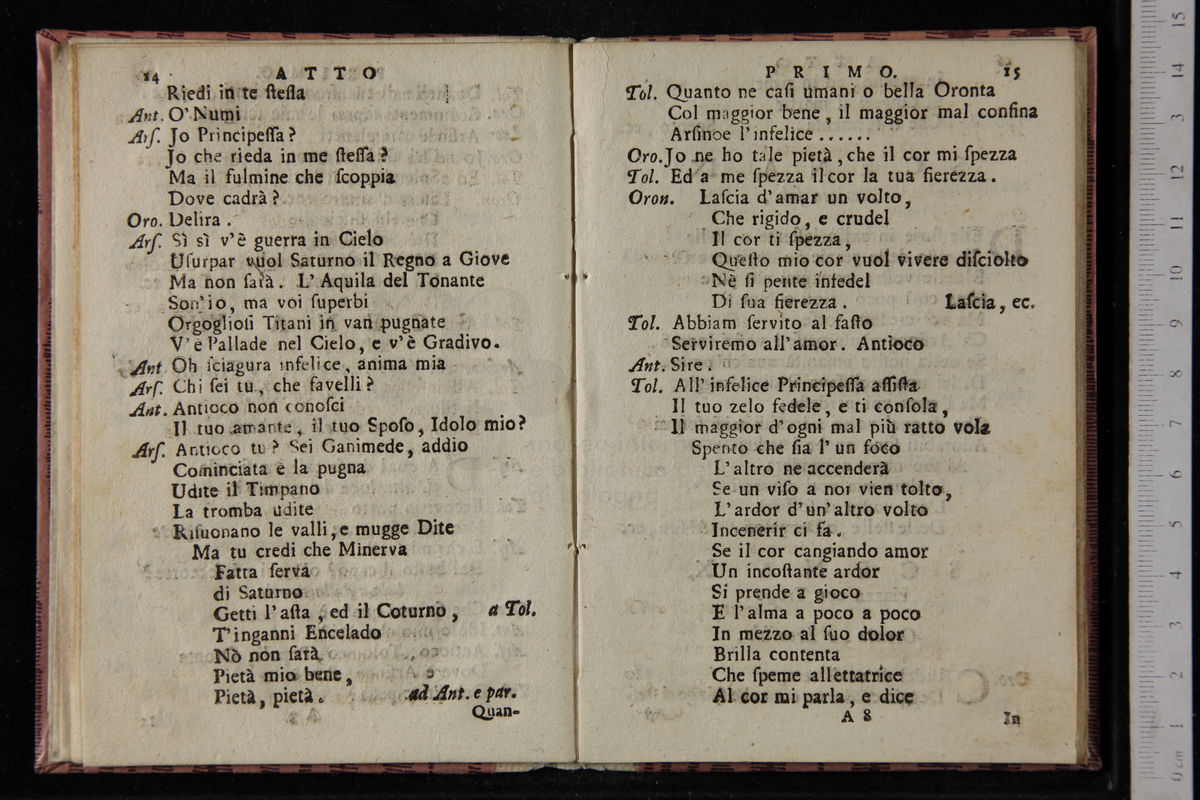 14 ATTO
Riedi in te ſteſſa
Ant. O' Numi
Arſ. Jo Principeſſa?
Jo che rieda in me ſteſſa?
Ma il fulmine che ſcoppia
Dove cadrà?
Oro. Delira.
Arſ. Sì sì v'è guerra in Cielo
Uſurpar vuol Saturno il Regno a Giove
Ma non ſarà. L' Aquila del Tonante
Son'io, ma voi ſuperbi
Orgoglioſi Titani in van pugnate
V'è Pallade nel Cielo, e v'è Gradivo.
Ant Oh ſciagura infelice, anima mia
Arſ. Chi ſei tu, che favelli?
Ant. Antioco non conoſci
Il tuo amante, il tuo Spoſo, Idolo mio?
Arſ. Antioco tu? Sei Ganimede, addio
Cominciata è la pugna
Udite il Timpano
La tromba udite
Riſuonano le valli, e mugge Dite
Ma tu credi che Minerva
Fatta ſerva
di Saturno
Getti l'aſta, ed il Coturno, a Tol.
T'inganni Encelado
Nò non ſarà
Pietà mio bene,
Pietà, pietà. ad Ant. e par.
Quan-
PRIMO. 15
Tol. Quanto ne caſi umani o bella Oronta
Col maggior bene, il maggior mal confina
Arſinoe l'infelice ......
Oro. Jo ne ho tale pietà, che il cor mi ſpezza
Tol. Ed a me ſpezza il cor la tua fierezza.
Oron. Laſcia d'amar un volto,
Che rigido, e crudel
Il cor ti ſpezza,
Queſto mio cor vuol vivere diſciolto
Nè ſi pente infedel
Di ſua fierezza. Laſcia, ec.
Tol. Abbiam ſervito al faſto
Serviremo all'amor. Antioco
Ant. Sire.
Tol. All' infelice Principeſſa aſſiſta
Il tuo zelo fedele, e ti conſola,
Il maggior d'ogni mal più ratto vola
Spento che ſia l' un foco
L' altro ne accenderà
Se un viſo a noi vien tolto,
L' ardor d'un' altro volto
Incenerir ci fa.
Se il cor cangiando amor
Un incoſtante ardor
Si prende a gioco
E l'alma a poco a poco
In mezzo al ſuo dolor
Brilla contenta
Che ſpeme allettatrice
Al cor mi parla, e dice
A 8 In
0 cm 1 2 3 4 5 6 7 8 9 10 11 12 13 14 15